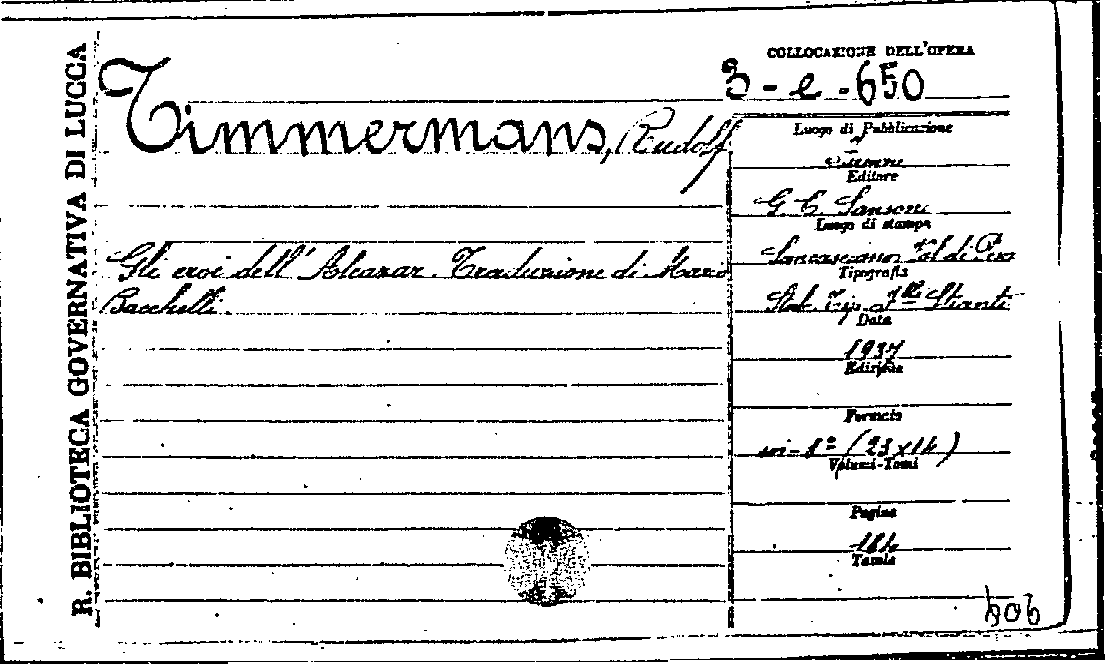 R. BIBLIOTECA GOVERNATIVA DI LUCCA
COLLOCAZIONE DELL'OPERA
3-e-650
Timmermans, Rudolf
Gli eroi dell'Alcazar. Traduzione di Mario
Bacchelli.
Luogo di Pubblicazione
Firenze
Editore
G. C. Sansoni
Luogo di stampa
Sancasciano Val di Pesa
Tipografia
Stab. Tip. F.lli Stianti
Data
1937
Edizione
Formato
in-8º (23x16)
Volumi-Tomi
Pagine
184
Tavole